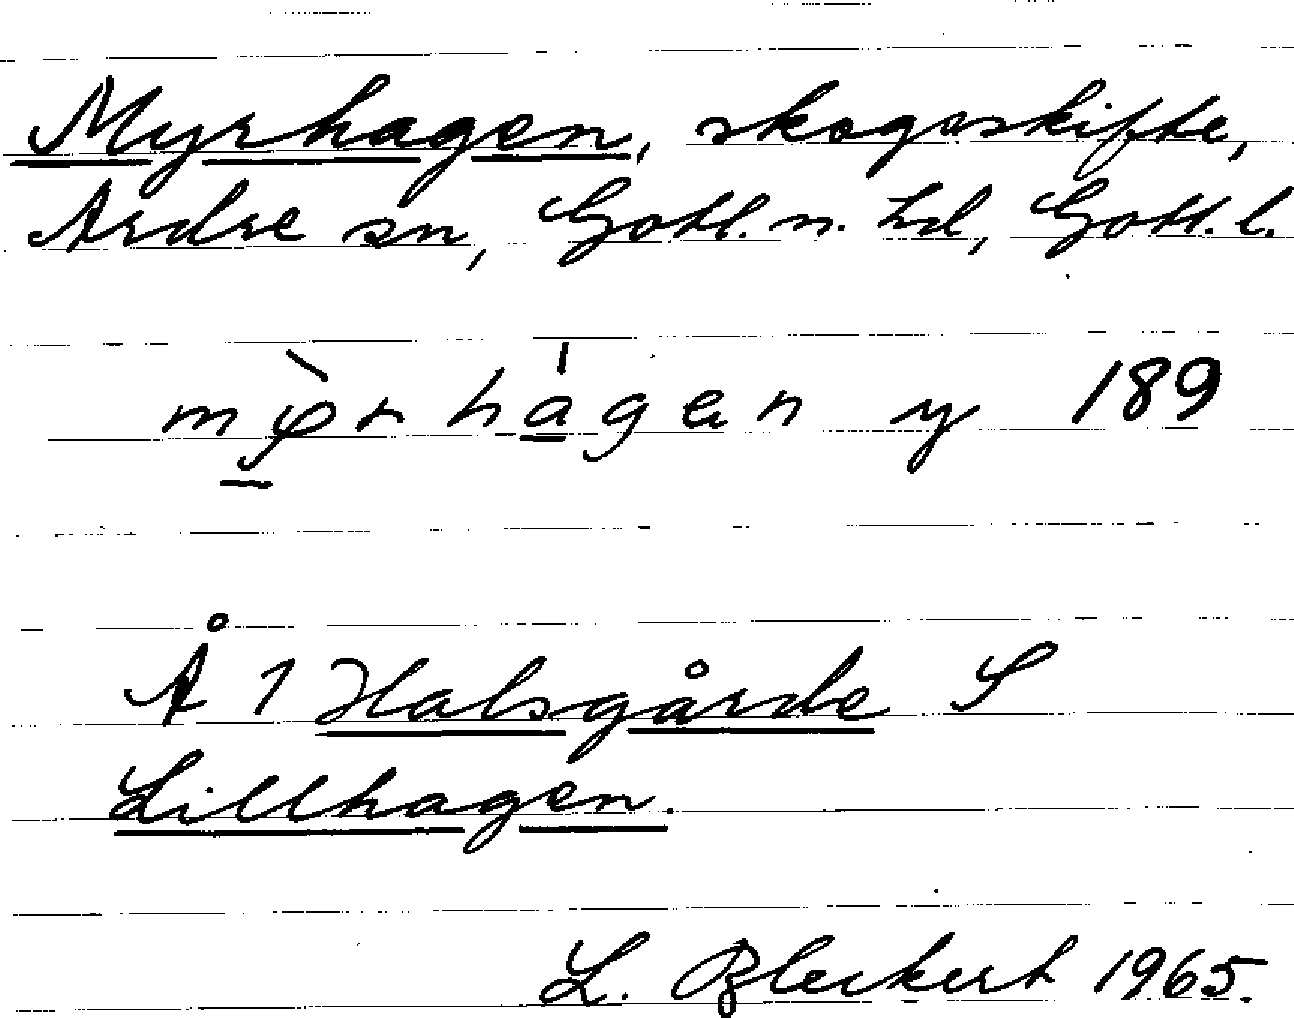 Myrhagen, skogsskifte,
Ardre sn, Gotl. n. hd, Gotl. l.
hagen y 189
Å 1 Halsgårde S
Lillhagen.
L. Bleckert 1965.